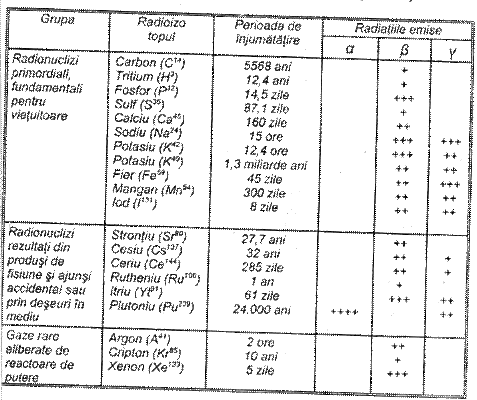 Grupa Radioizo topul Perioada de înjumătăţire Radiaţiile emise
α β γ
Radionuclizi primordiali, fundamentali pentru vieţuitoare
Carbon (C¹⁴) 5568 ani +
Tritium (H³) 12,4 ani +
Fosfor (P³²) 14,5 zile +++
Sulf (S³⁵) 87,1 zile +
Calciu (Ca⁴⁵) 160 zile ++
Sodiu (Na²⁴) 15 ore +++ +++
Potasiu (K⁴²) 12,4 ore +++ ++
Potasiu (K⁴⁰) 1,3 miliarde ani ++ ++
Fier (Fe⁵⁹) 45 zile ++ +++
Mangan (Mn⁵⁴) 300 zile ++ ++
Iod (I¹³¹) 8 zile ++ ++
Radionuclizi rezultaţi din produşi de fisiune şi ajunşi accidental sau prin deşeuri în mediu
Stronţiu (Sr⁸⁹) 27,7 ani ++
Cesiu (Cs¹³⁷) 32 ani ++ +
Ceriu (Ce¹⁴⁴) 285 zile ++ +
Rutheniu (Ru¹⁰⁶) 1 an +
Itriu (Yt⁹¹) 61 zile +++ ++
Plutoniu (Pu²³⁹) 24.000 ani ++++ ++
Gaze rare eliberate de reactoare de putere
Argon (A⁴¹) 2 ore ++
Cripton (Kr⁸⁵) 10 ani +
Xenon (Xe¹³³) 5 zile +++